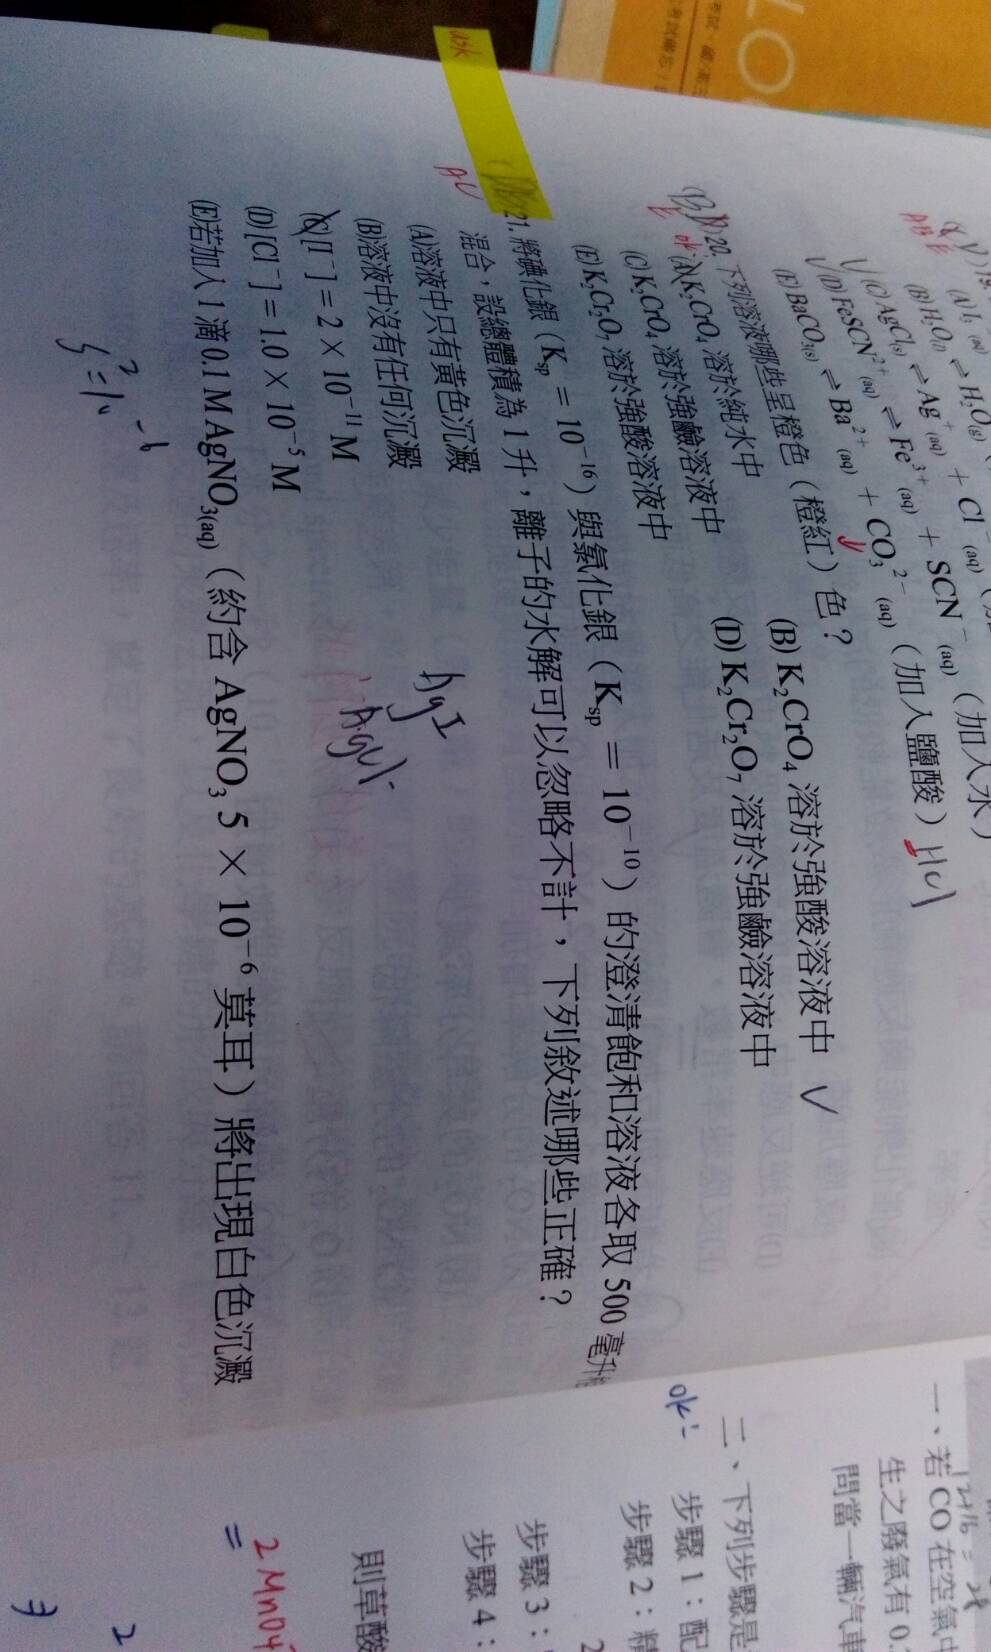 LO
ask
(A) I₂ (aq)
(B) H₂O(l) ⇌ H₂O(g)
(C) AgCl(s) ⇌ Ag⁺(aq) + Cl⁻(aq)
(D) FeSCN²⁺(aq) ⇌ Fe³⁺(aq) + SCN⁻(aq)(加入水)
(E) BaCO₃(s) ⇌ Ba²⁺(aq) + CO₃²⁻(aq)(加入鹽酸) HCl
20. 下列溶液哪些呈橙色(橙紅)色?
ok
(A) K₂CrO₄ 溶於純水中 (B) K₂CrO₄ 溶於強酸溶液中
(C) K₂CrO₄ 溶於強鹼溶液中 (D) K₂Cr₂O₇ 溶於強鹼溶液中
(E) K₂Cr₂O₇ 溶於強酸溶液中
21. 將碘化銀(Ksp = 10⁻¹⁶)與氯化銀(Ksp = 10⁻¹⁰)的澄清飽和溶液各取 500 毫升
混合,設總體積為 1 升,離子的水解可以忽略不計,下列敘述哪些正確?
(A)溶液中只有黃色沉澱
AgI
(B)溶液中沒有任何沉澱
AgCl
(C) [I⁻] = 2 × 10⁻¹¹ M
(D) [Cl⁻] = 1.0 × 10⁻⁵ M
(E)若加入 1 滴 0.1 M AgNO₃(aq)(約含 AgNO₃ 5 × 10⁻⁶ 莫耳)將出現白色沉澱
一、若 CO 在空氣中
生之廢氣有 0.
問當一輛汽車
ok
二、下列步驟是
步驟 1:配
步驟 2:精
步驟 3:
步驟 4:
則草酸
2MnO₄⁻
=